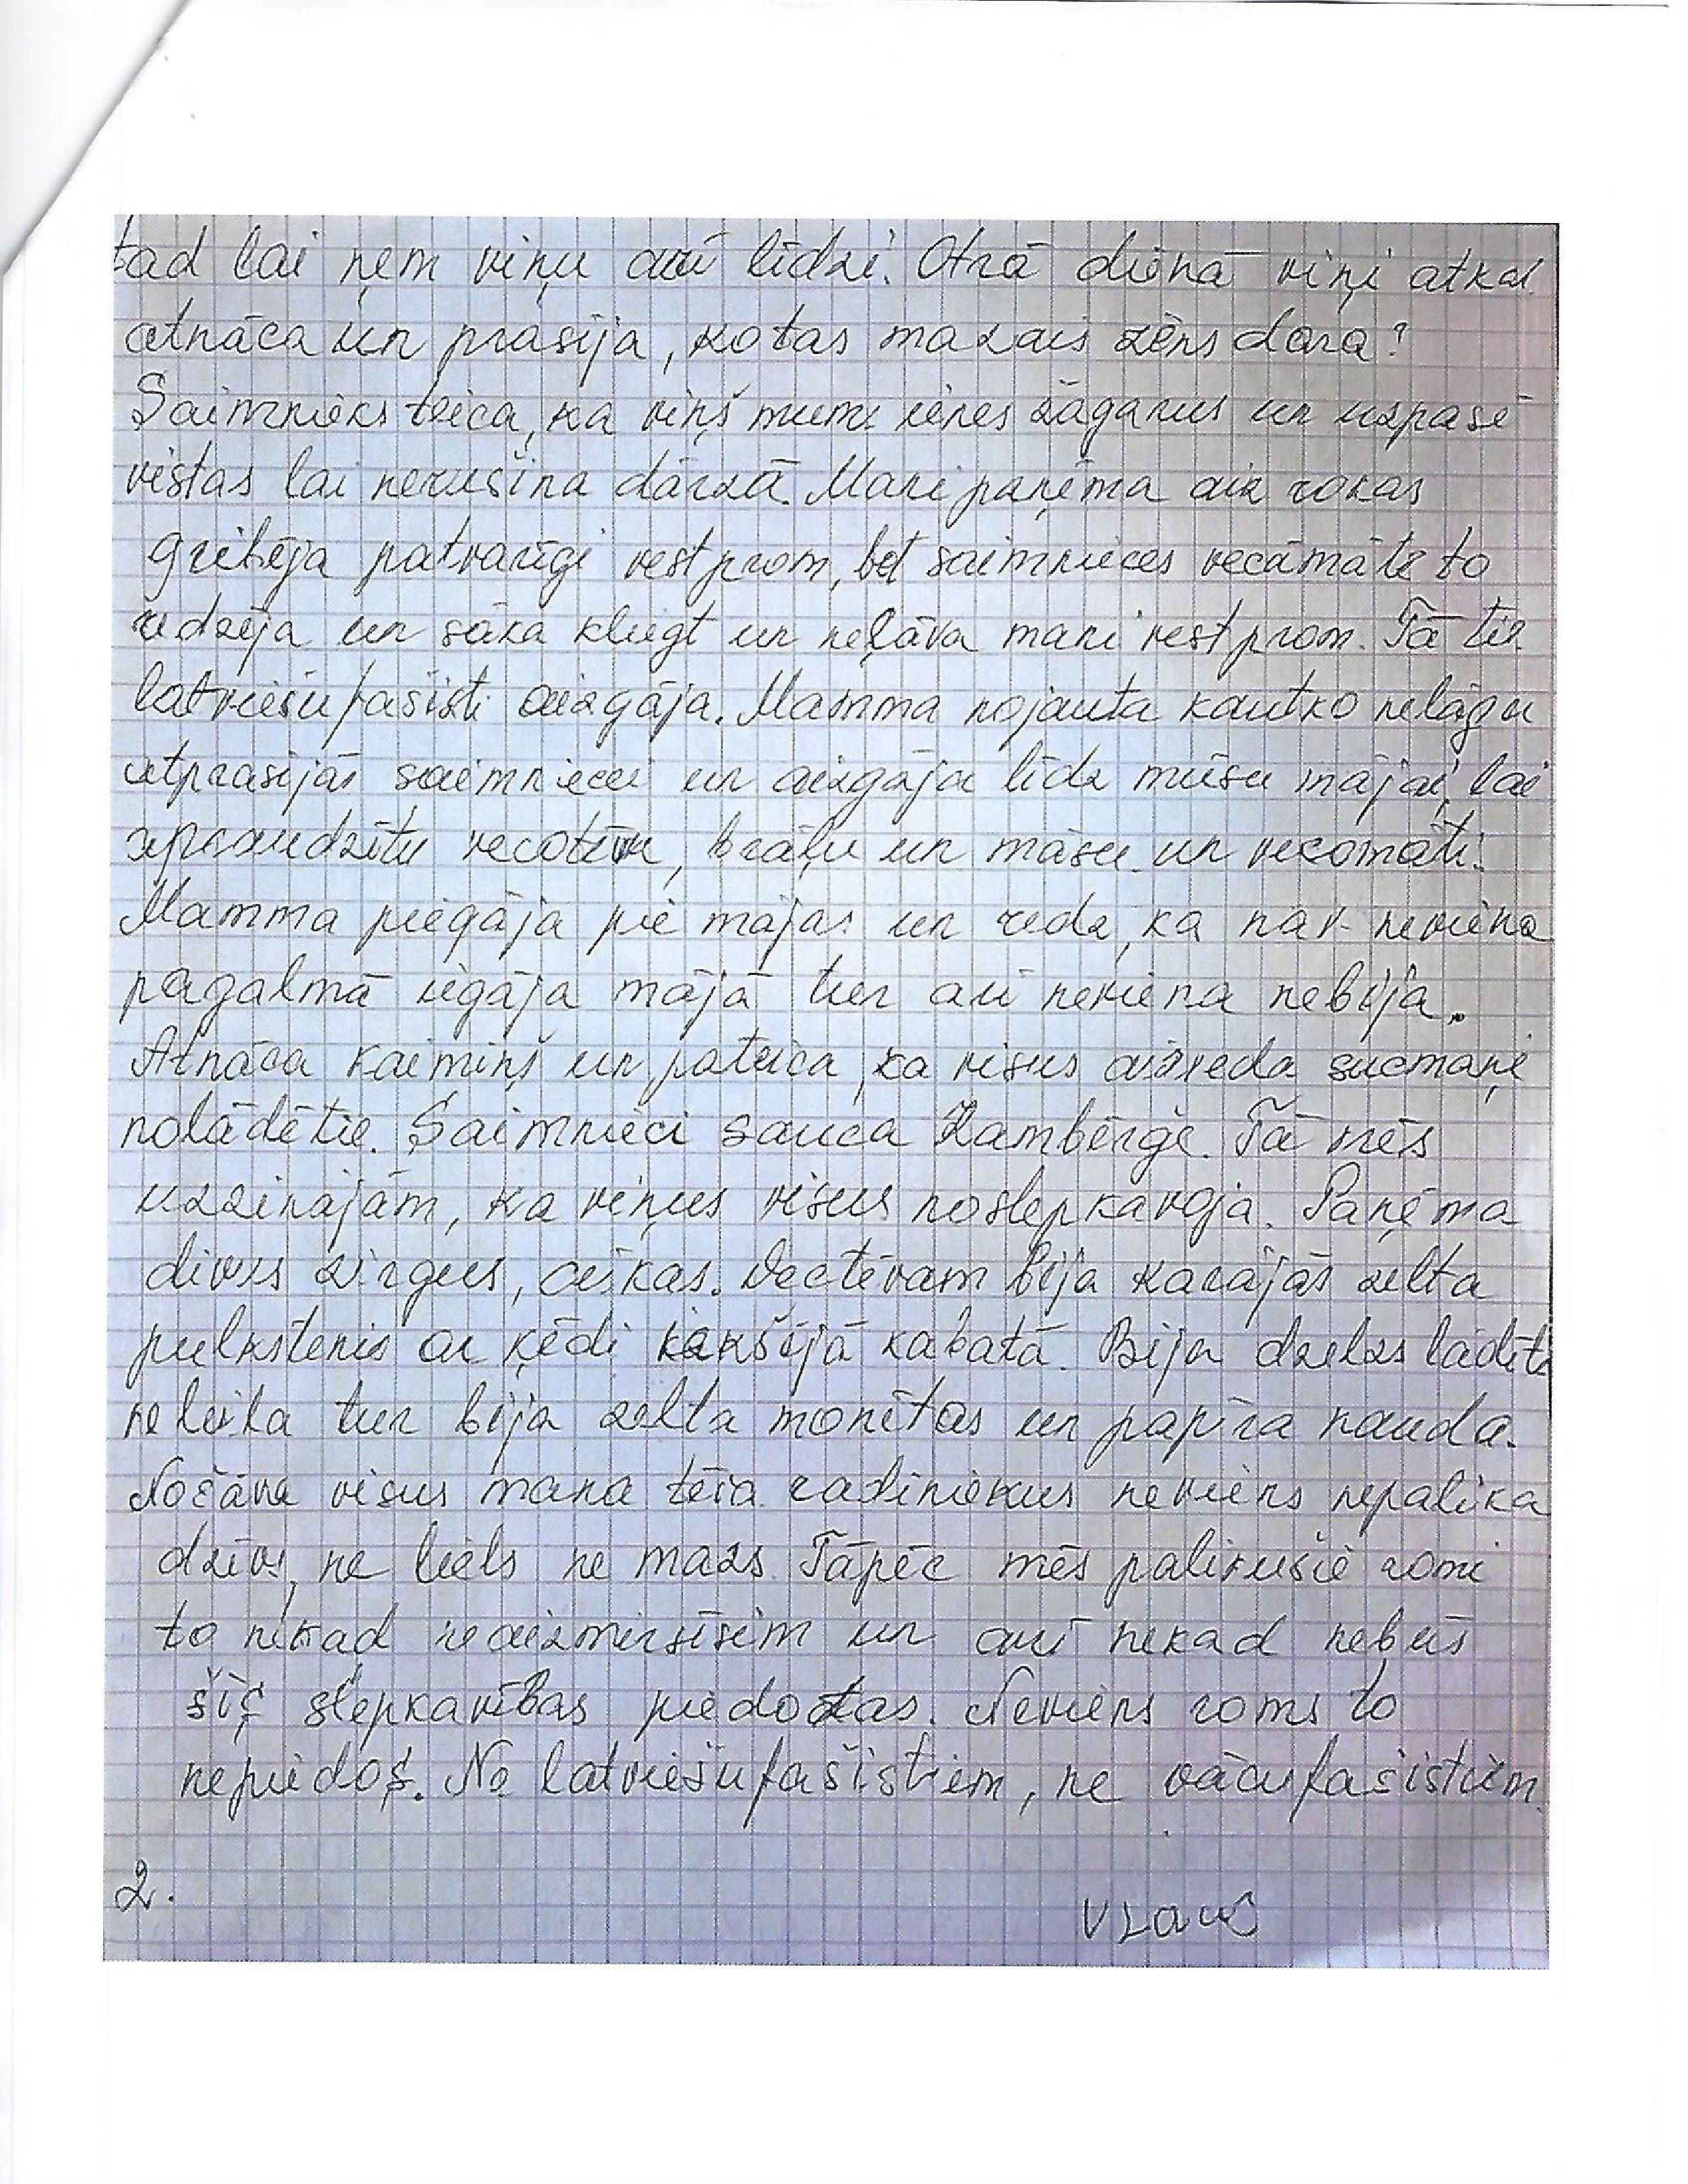 tad lai ņem viņu arī līdzi. Otrā dienā viņi atkal
atnāca un prasīja, ko tas mazais zēns dara?
Saimnieks teica, ka viņš mums ienes žagarus un uzpasē
vistas lai nerušina dārzā. Mani paņēma aiz rokas
gribēja patvarīgi vest prom, bet saimnieces vecāmāte to
redzēja un sāka kliegt un neļāva mani vest prom. Tā tie
latviešu fašisti aizgāja. Mamma nojauta kautko nelāgu
atprasijās saimniecei un aizgāja līdz mūsu mājai, lai
apraudzītu vecotēvu, brāļu un māsu un vecomāti.
Mamma piegāja pie mājas un redz, ka nav neviena
pagalmā iegāja mājā tur arī neviena nebija.
Atnāca kaimiņš un pateica, ka visus aizveda sucmaņi
nolādētie. Saimnieci sauca Zambērģe. Tā mēs
uzzinājām, ka viņus visus noslepkavoja. Paņēma
divus zirgus, cūkas. Vectēvam bija karājās zelta
pulkstenis ar ķēdi iekšējā kabatā. Bija dzelzs lādīte
neliela tur bija zelta monētas un papīra nauda.
Nošāva visus mana tēva radiniekus neviens nepalika
dzīvs, ne liels ne mazs. Tāpēc mēs palikušie romi
to nekad neaizmirsīsim un arī nekad nebūs
šīs slepkavības piedotas. Neviens roms to
nepiedos. Ne latviešu fašistiem, ne vācu fašistiem.
2.